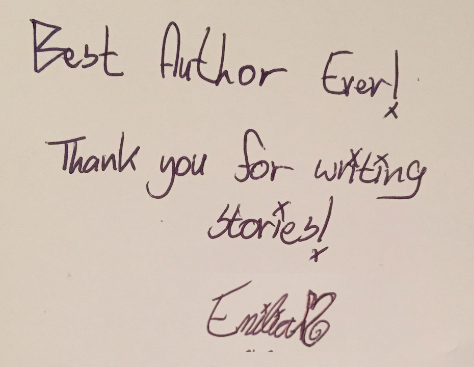 Best Author Ever!
Thank you for writing
stories!
Emilia